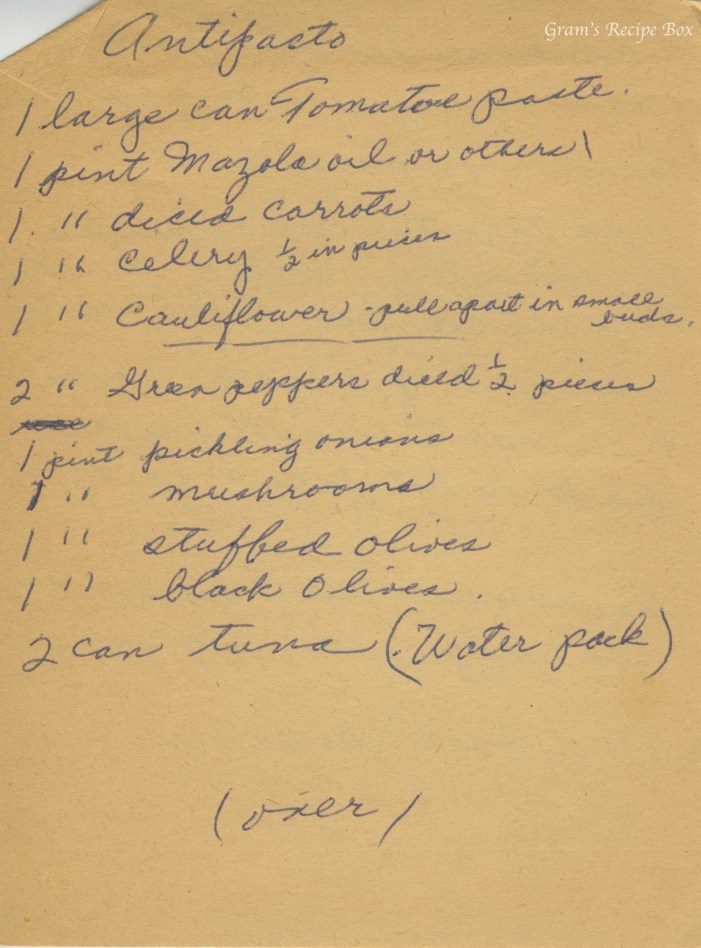 Gram's Recipe Box
Antipasto
1 large can Tomatoe paste.
1 pint Mazola oil or others\
1. " diced carrots
1 " Celery ½ in pieces
1 " Cauliflower - pull apart in small
buds.
2 " Green peppers diced ½ pieces
1 pint pickling onions
1 " mushrooms
1 " stuffed olives
1 " black Olives.
2 can tuna (Water pack)
(over)